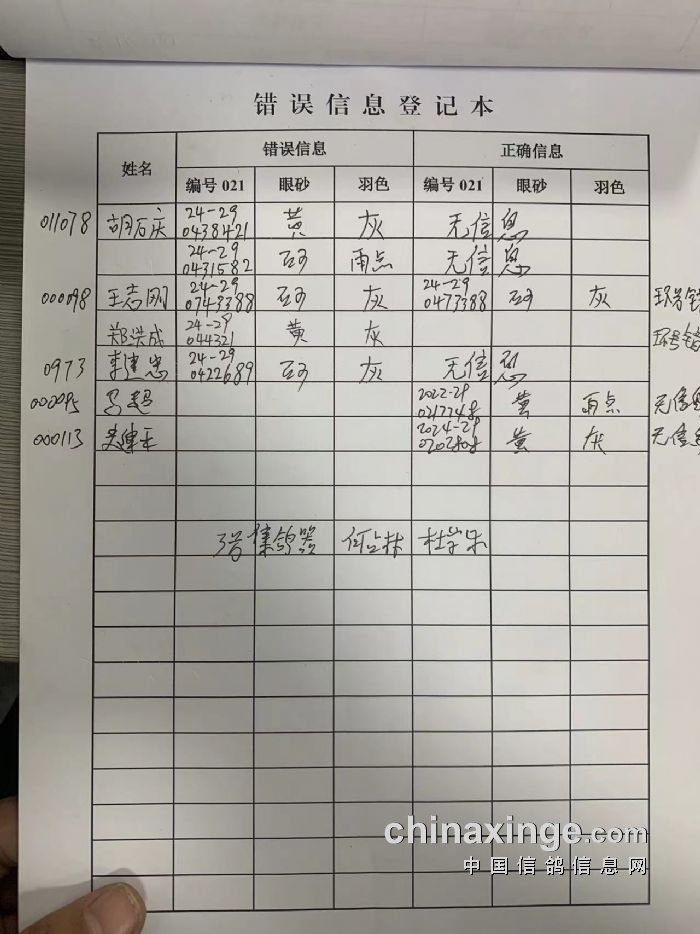 错误信息登记本
姓名 错误信息 正确信息
编号 021 眼砂 羽色 编号 021 眼砂 羽色
011078 胡石庆 24-29 0438421 黄 灰 无信息
24-29 0431582 砂 雨点 无信息
000098 王志刚 24-29 0743388 砂 灰 24-29 0473388 砂 灰 环号
郑洪成 24-29 044321 黄 灰 环号
0973 李建忠 24-29 0422689 砂 灰 无信息
000095 马超 2022-29 黄 雨点 无信息
000113 2024-29 黄 灰 无信息
3号集鸽器 何占林
chinaxinge.com
中国信鸽信息网